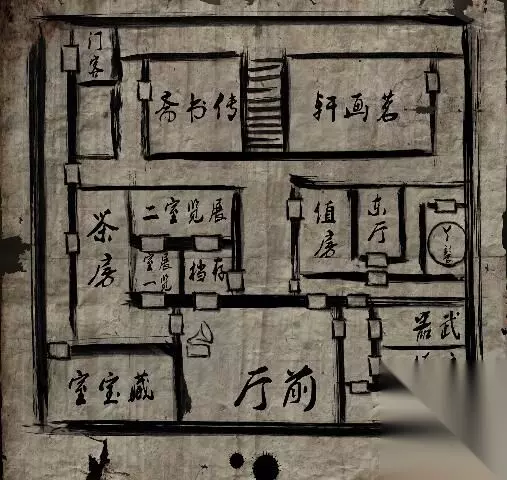 门客
传书斋
茗画轩
茶房
展览室二
值房
东厅
丫鬟
展览室一
存档
武器
藏宝室
前厅